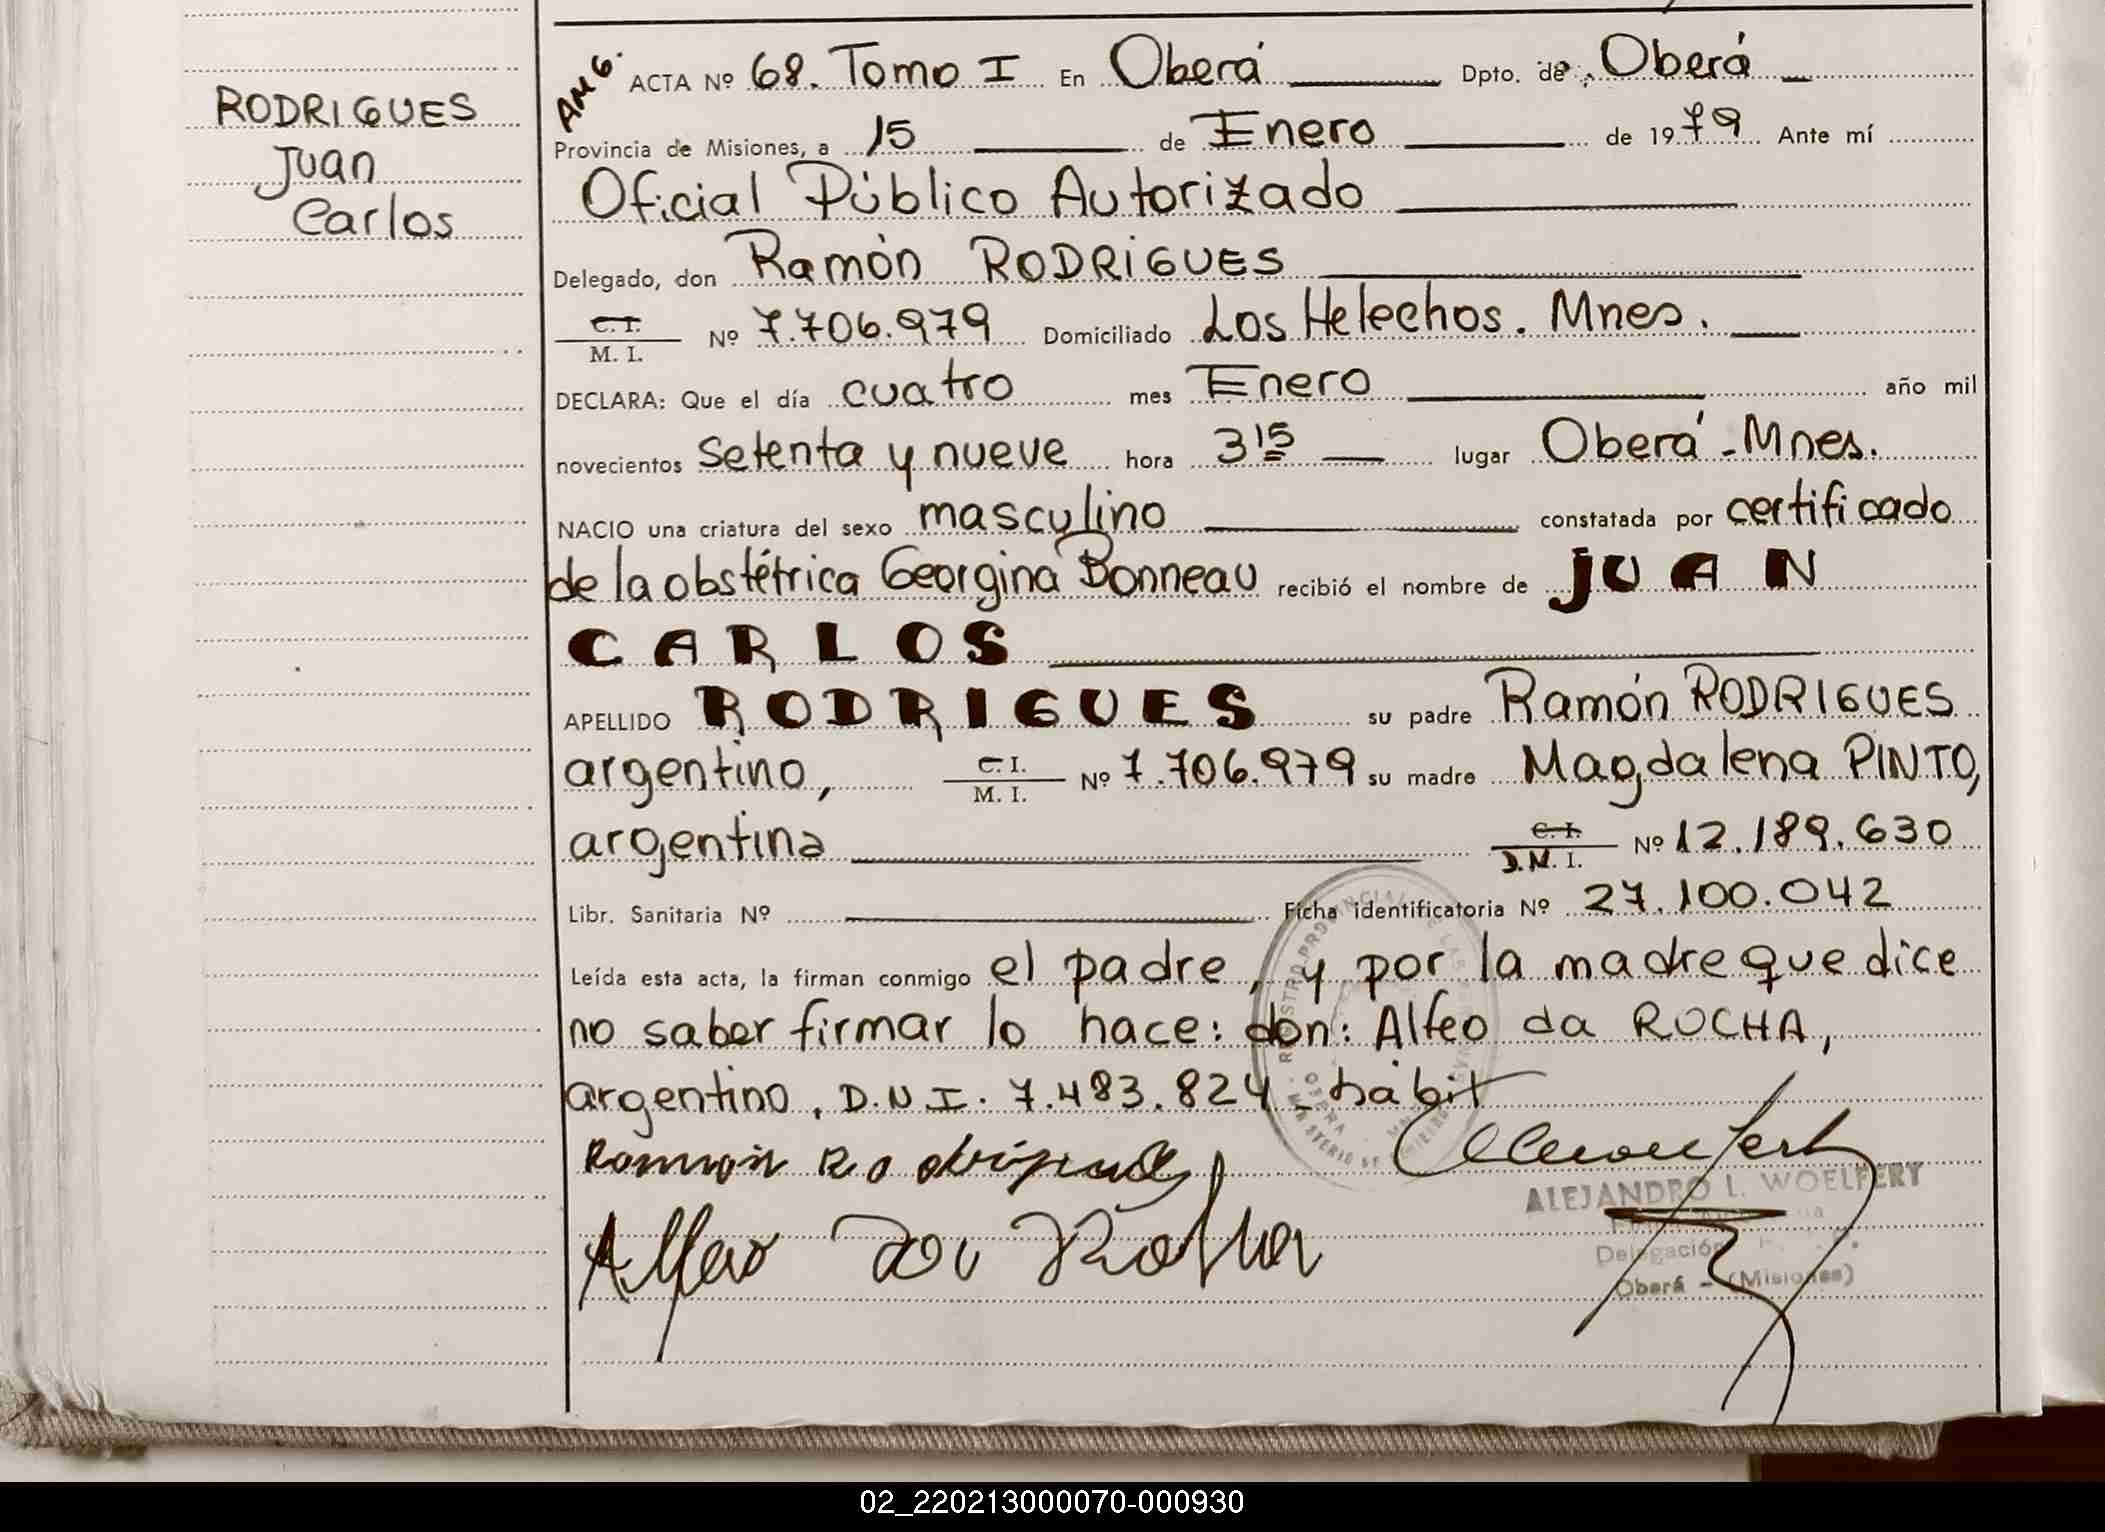 RODRIGUES
Juan
Carlos
AMG.
ACTA Nº 68. Tomo I En Oberá Dpto. de Oberá
Provincia de Misiones, a 15 de Enero de 1979 Ante mí
Oficial Público Autorizado
Delegado, don Ramón RODRIGUES
C. I.
M. I. Nº 7.706.979 Domiciliado Los Helechos. Mnes.
DECLARA: Que el día cuatro mes Enero año mil
novecientos setenta y nueve hora 3 15 lugar Oberá - Mnes.
NACIO una criatura del sexo masculino constatada por certificado
de la obstétrica Georgina Bonneau recibió el nombre de JUAN
CARLOS
APELLIDO RODRIGUES su padre Ramón RODRIGUES
argentino, C. I.
M. I. Nº 7.706.979 su madre Magdalena PINTO,
argentina C. I.
D.N. I. Nº 12.189.630
Libr. Sanitaria Nº Ficha identificatoria Nº 27.100.042
Leída esta acta, la firman conmigo el padre, y por la madre que dice
no saber firmar lo hace: don: Alfeo da ROCHA,
argentino, D.N.I. 7.483.824 - hábil
Ramon
ALEJANDRO L. WOELFERY
Delegación
Oberá - (Misiones)
Alfeo Da Rocha
02_220213000070-000930